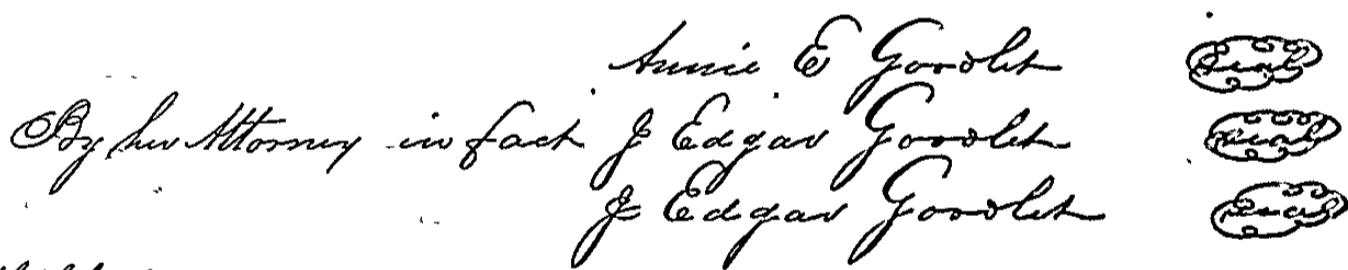 Annie E Goodlet Seal
By her Attorney in fact J Edgar Goodlet Seal
J Edgar Goodlet Seal